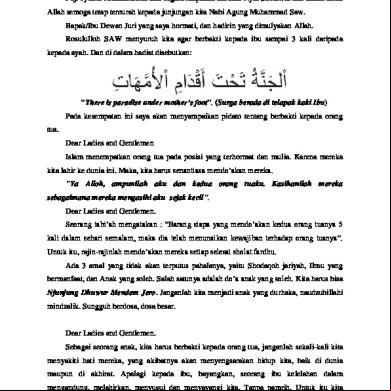 Allah semoga tetap tercurah kepada junjungan kita Nabi Agung Muhammad Saw.
Bapak/Ibu Dewan Juri yang saya hormati, dan hadirin yang dimulyakan Allah.
Rosululloh SAW menyuruh kita agar berbakti kepada ibu sampai 3 kali daripada
kepada ayah. Dan di dalam hadist disebutkan:
اَلْجَنَّةُ تَحْتَ أَقْدَامِ الْأُمَّهَاتِ
"There is paradise under mother's foot". (Surga berada di telapak kaki Ibu)
Pada kesempatan ini saya akan menyampaikan pidato tentang berbakti kepada orang
tua.
Dear Ladies and Gentlemen
Islam menempatkan orang tua pada posisi yang terhormat dan mulia. Karena mereka
kita lahir ke dunia ini. Maka, kita harus senantiasa mendo'akan mereka.
"Ya Alloh, ampunilah aku dan kedua orang tuaku. Kasihanilah mereka
sebagaimana mereka mengasihi aku sejak kecil".
Dear Ladies and Gentlemen.
Seorang tabi'ah mengatakan : "Barang siapa yang mendo'akan kedua orang tuanya 5
kali dalam sehari semalam, maka dia telah menunaikan kewajiban terhadap orang tuanya".
Untuk itu, rajin-rajinlah mendo'akan mereka setiap selesai sholat fardhu.
Ada 3 amal yang tidak akan terputus pahalanya, yaitu Shodaqoh jariyah, Ilmu yang
bermanfaat, dan Anak yang soleh. Salah satunya adalah do'a anak yang soleh. Kita harus bisa
Njunjung Dhuwur Mendem Jero. Janganlah kita menjadi anak yang durhaka, naudzubillahi
mindzalik. Sungguh berdosa, dosa besar.
Dear Ladies and Gentlemen.
Sebagai seorang anak, kita harus berbakti kepada orang tua, janganlah sekali-kali kita
menyakiti hati mereka, yang akibatnya akan menyengsarakan hidup kita, baik di dunia
maupun di akhirat. Apalagi kepada ibu, bayangkan, seorang ibu kelelahan dalam
mengandung, melahirkan, menyusui dan menyayangi kita. Tanpa pamrih. Untuk itu kita